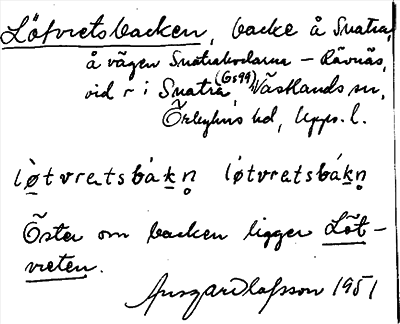 Lötvretsbacken, backe å Snatra,
å vägen Snatrabodarna – Rävnäs,
vid r i Snatra (Gs99), Västlands sn,
Örbyhus hd, Upps. l.
lø̀tvrætsbákn̥ løtvrætsbákn̥
Öster om backen ligger Löt-
vreten.
Ansgar Olofsson 1951